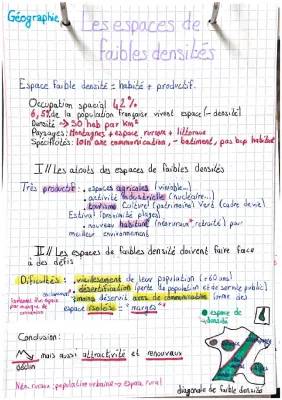 Géographie
Les espaces de
faibles densités
Espace faible densité = habité + productif.
Occupation spacial 42%
6,5% de la population française vivent espace (- densité)
Densité → 30 hab par km²
Paysages: Montagnes, espace ruraux + littoraux
Spécifités: loin axe communication, - batiment, pas bcp habitant
I // Les atouts des espaces de faibles densités
Très productif: • espaces agricoles (viticole...)
• activité industrielle (nucléaire...)
• tourisme Culturel (patrimoine) Vert (cadre de vie)
Estival (proximité plages)
• nouveau habitant (néoruraux + retraité) par
meilleur environnement
II // Les espaces de faibles densité doivent faire face
à des défis
Difficultés: • vieillissement de leur population (+60 ans)
• désertification (perte de population et de service public)
• moins déservit axes de communication forme des
espace isolés = "marges"
• espace de
- densité
Conclusion:
mais aussi attractivité et renouveau
déclin
Néo. ruraux: population urbaine → espace rural
diagonale de faible densité